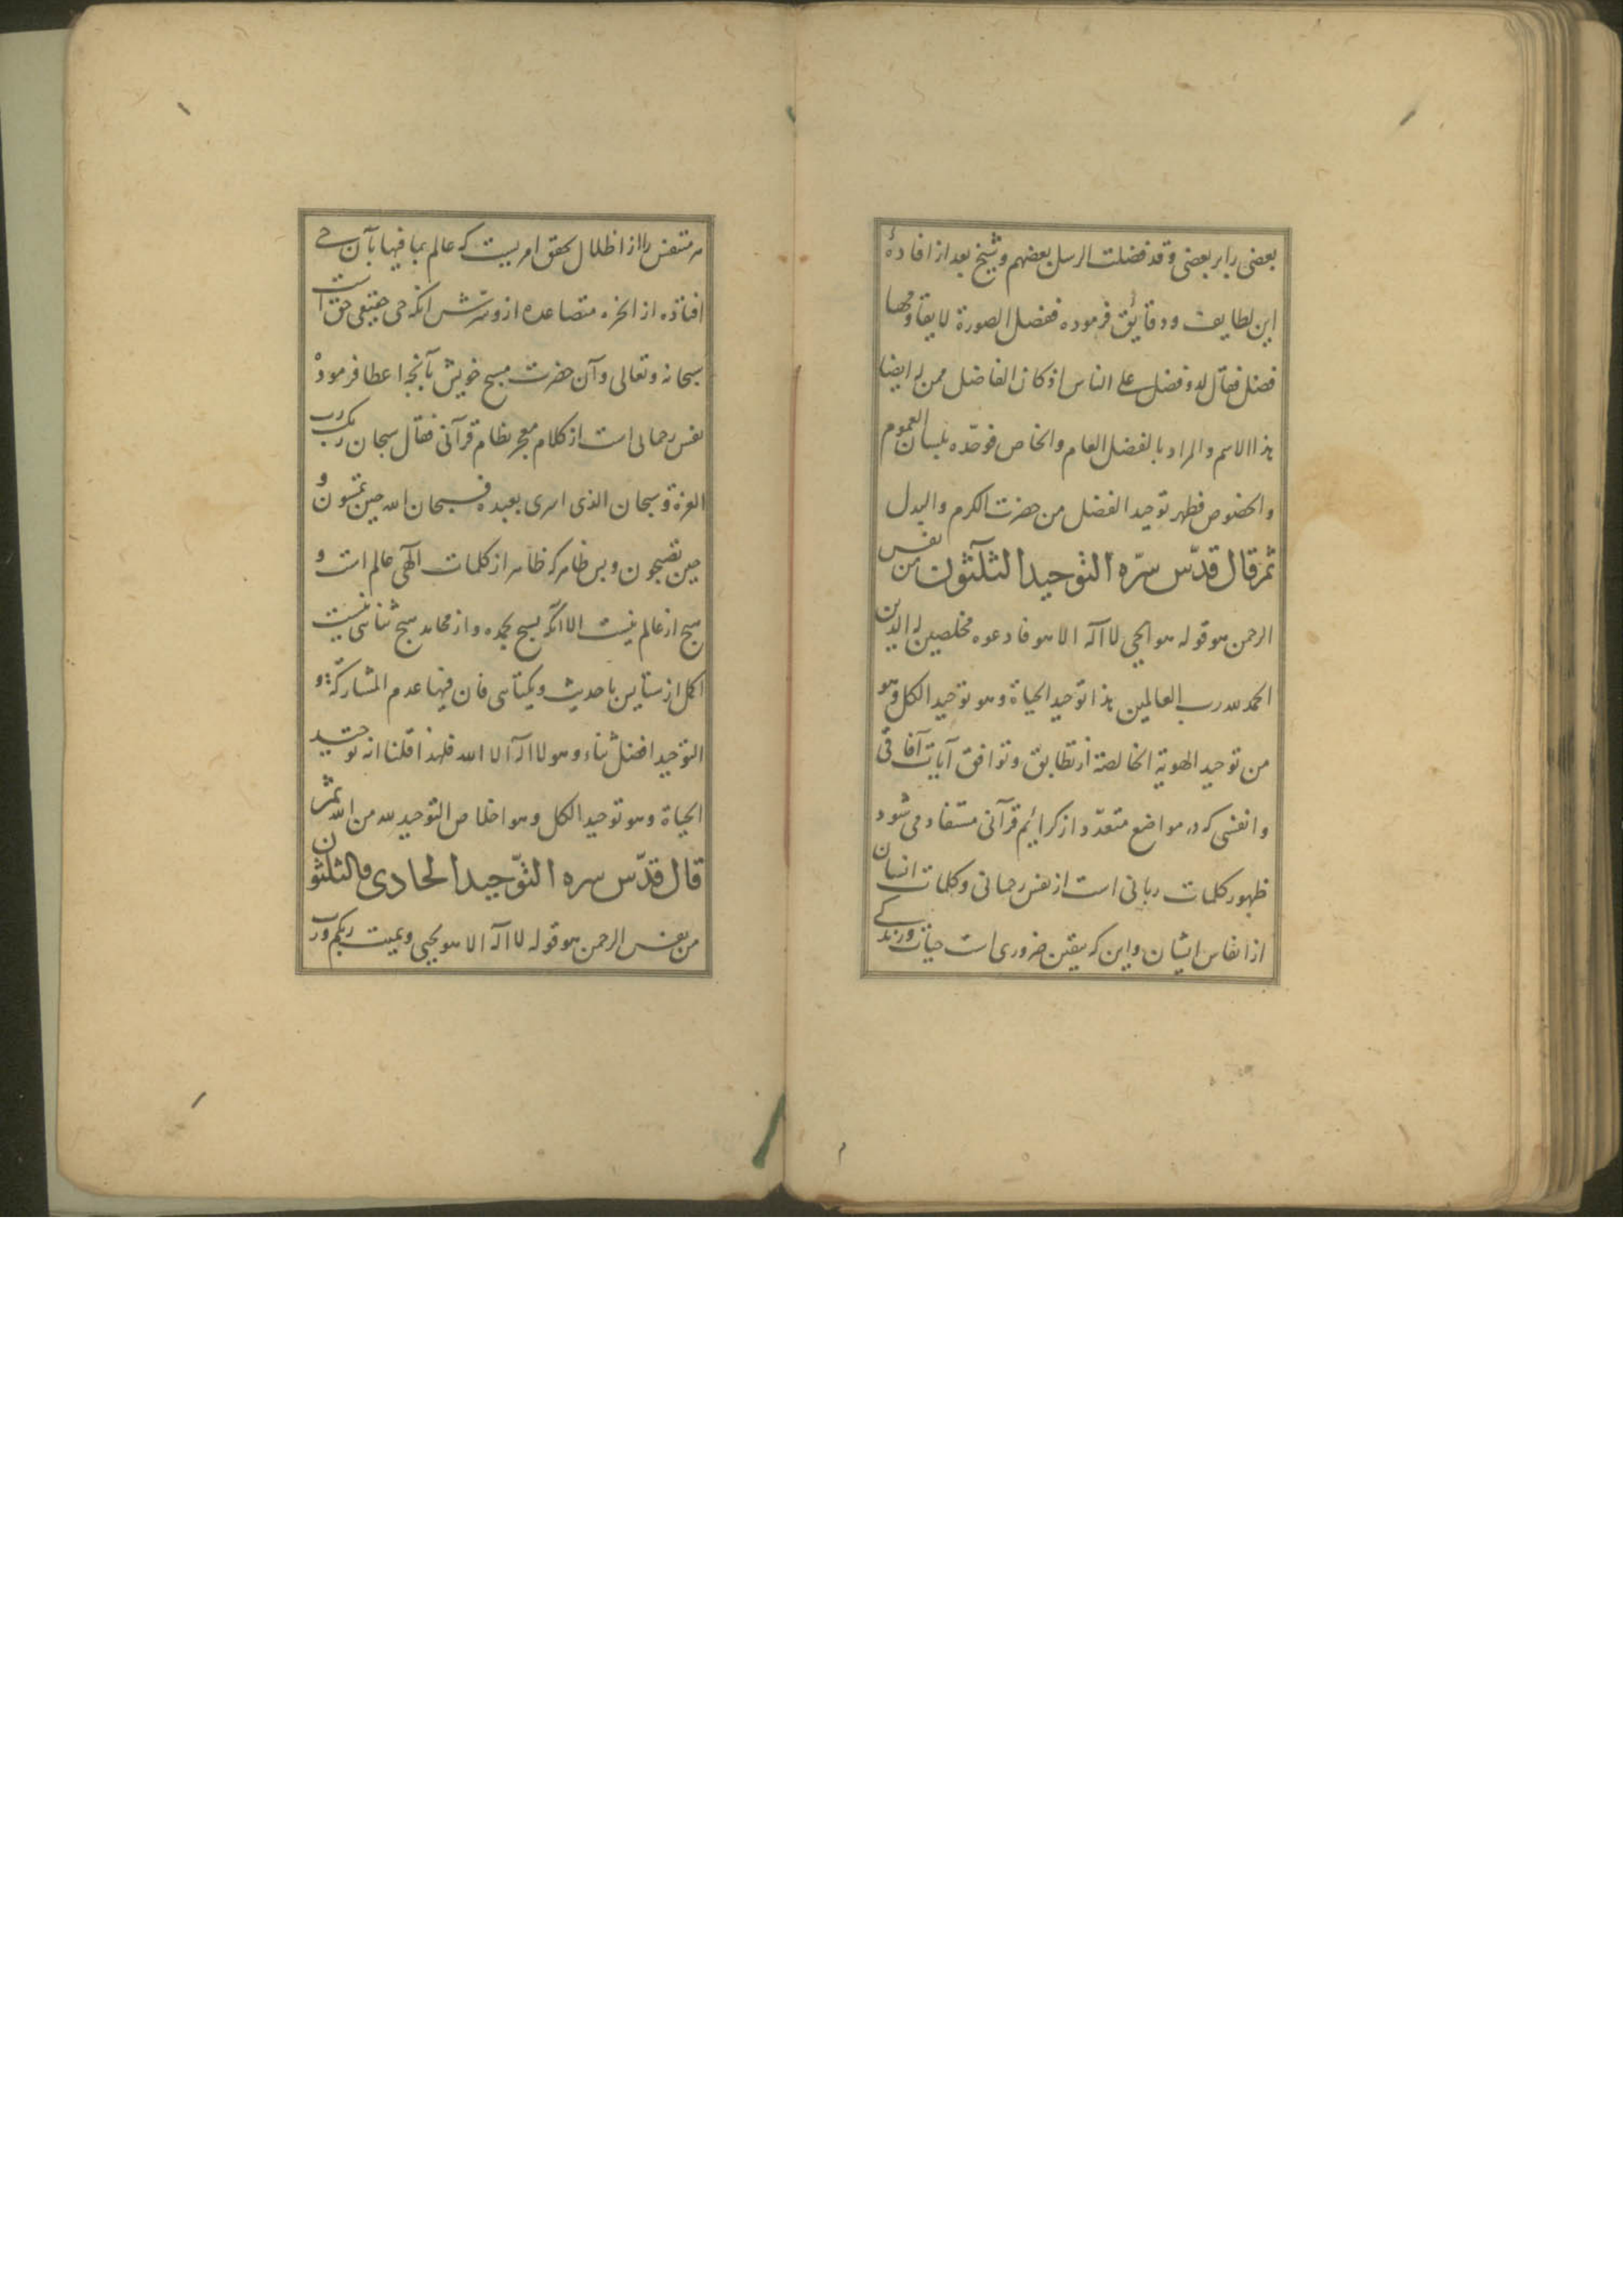 بعضی را بر بعضی و قد فضلت الرسل بعضهم و شیخ بعد از افادهٔ
این لطایف و دقائق فرموده ففضل الصورة لا یقاومها
فضل فقال لذو فضل علی الناس اذ کان الفاضل ممن له ایضا
هذا الاسم والمراد بالفضل العام والخاص فوحّده بلسان العموم
والخصوص فظهر توحید الفضل من حضرت الکرم والبدل
ثم قال قدّس سرّه التوحید الثلثون من نفس
الرحمن هو قوله هو الحی لا اله الا هو فادعوه مخلصین له الدین
الحمد لله رب العالمین هذا توحید الحیاة وهو توحید الکل وهو
من توحید الهویة الخالصة از تطابق و توافق آیات آفاقی
و انفسی که در مواضع متعدّد از کرائم قرآنی مستفاد می شود
ظهور کلمات ربانی است از نفس رحمانی و کلمات انسان
از انفاس ایشان و این که بیقین ضروری است حیات و زندگی
هر متنفس را از اظلال تحقق امریست که عالم بما فیها بآن حی
افتاده از ابخره متصاعده از و سرش آنکه حی حقیقی حق است
سبحانه و تعالی و آن حضرت مسبح خویش بآنچه اعطا فرموده
نفس رحمانی است از کلام معجز نظام قرآنی فقال سبحان ربک رب
العزة و سبحان الذی اسری بعبده فسبحان الله حین تمسون و
حین تصبحون و بس ظاهر که ظاهر از کلمات الهی عالم است و
هیچ از عالم نیست الا آنکه یسبح بحمده و از محامد هیچ ثنائی نیست
اکمل از ستایش باحدیث و یکتائی فان فیها عدم المشارکة و
التوحید افضل ثناء وهو لا اله الا الله فلهذا قلنا انه توحید
الحیاة وهو توحید الکل وهو اخلاص التوحید لله من الله ثم
قال قدّس سره التوّحید الحادی والثلثون
من نفس الرحمن هو قوله لا اله الا هو یحیی و یمیت ربکم و رب